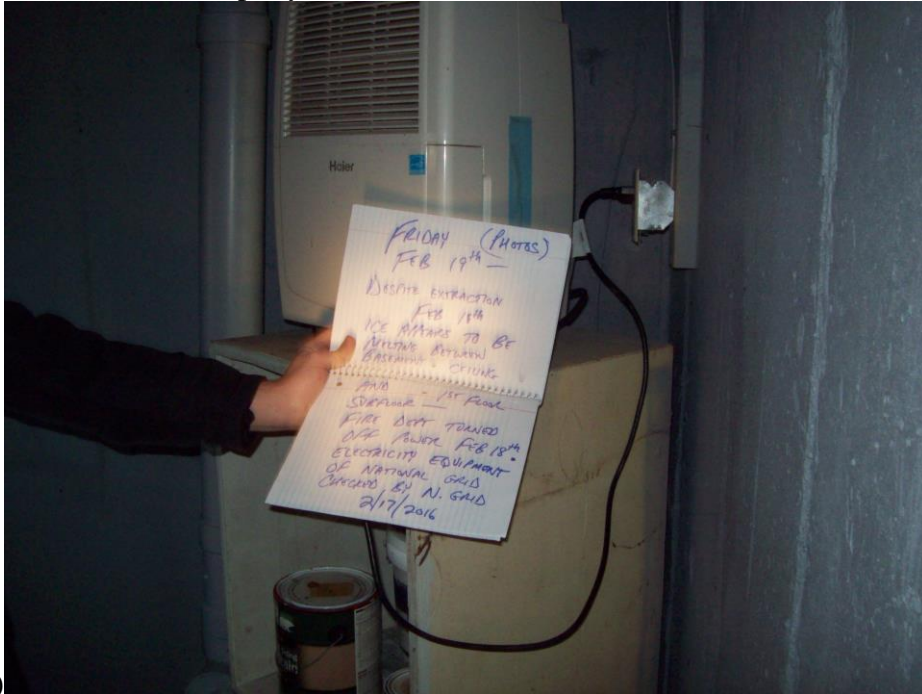 Haier
FRIDAY (PHOTOS)
FEB 19th —
DESPITE EXTRACTION
FEB 18th
ICE APPEARS TO BE
MELTING BETWEEN
BASEMENT CEILING
AND 1ST FLOOR
SUBFLOOR —
FIRE DEPT TURNED
OFF POWER FEB 18th.
ELECTRICITY EQUIPMENT
OF NATIONAL GRID
CHECKED BY N. GRID
2/17/2016